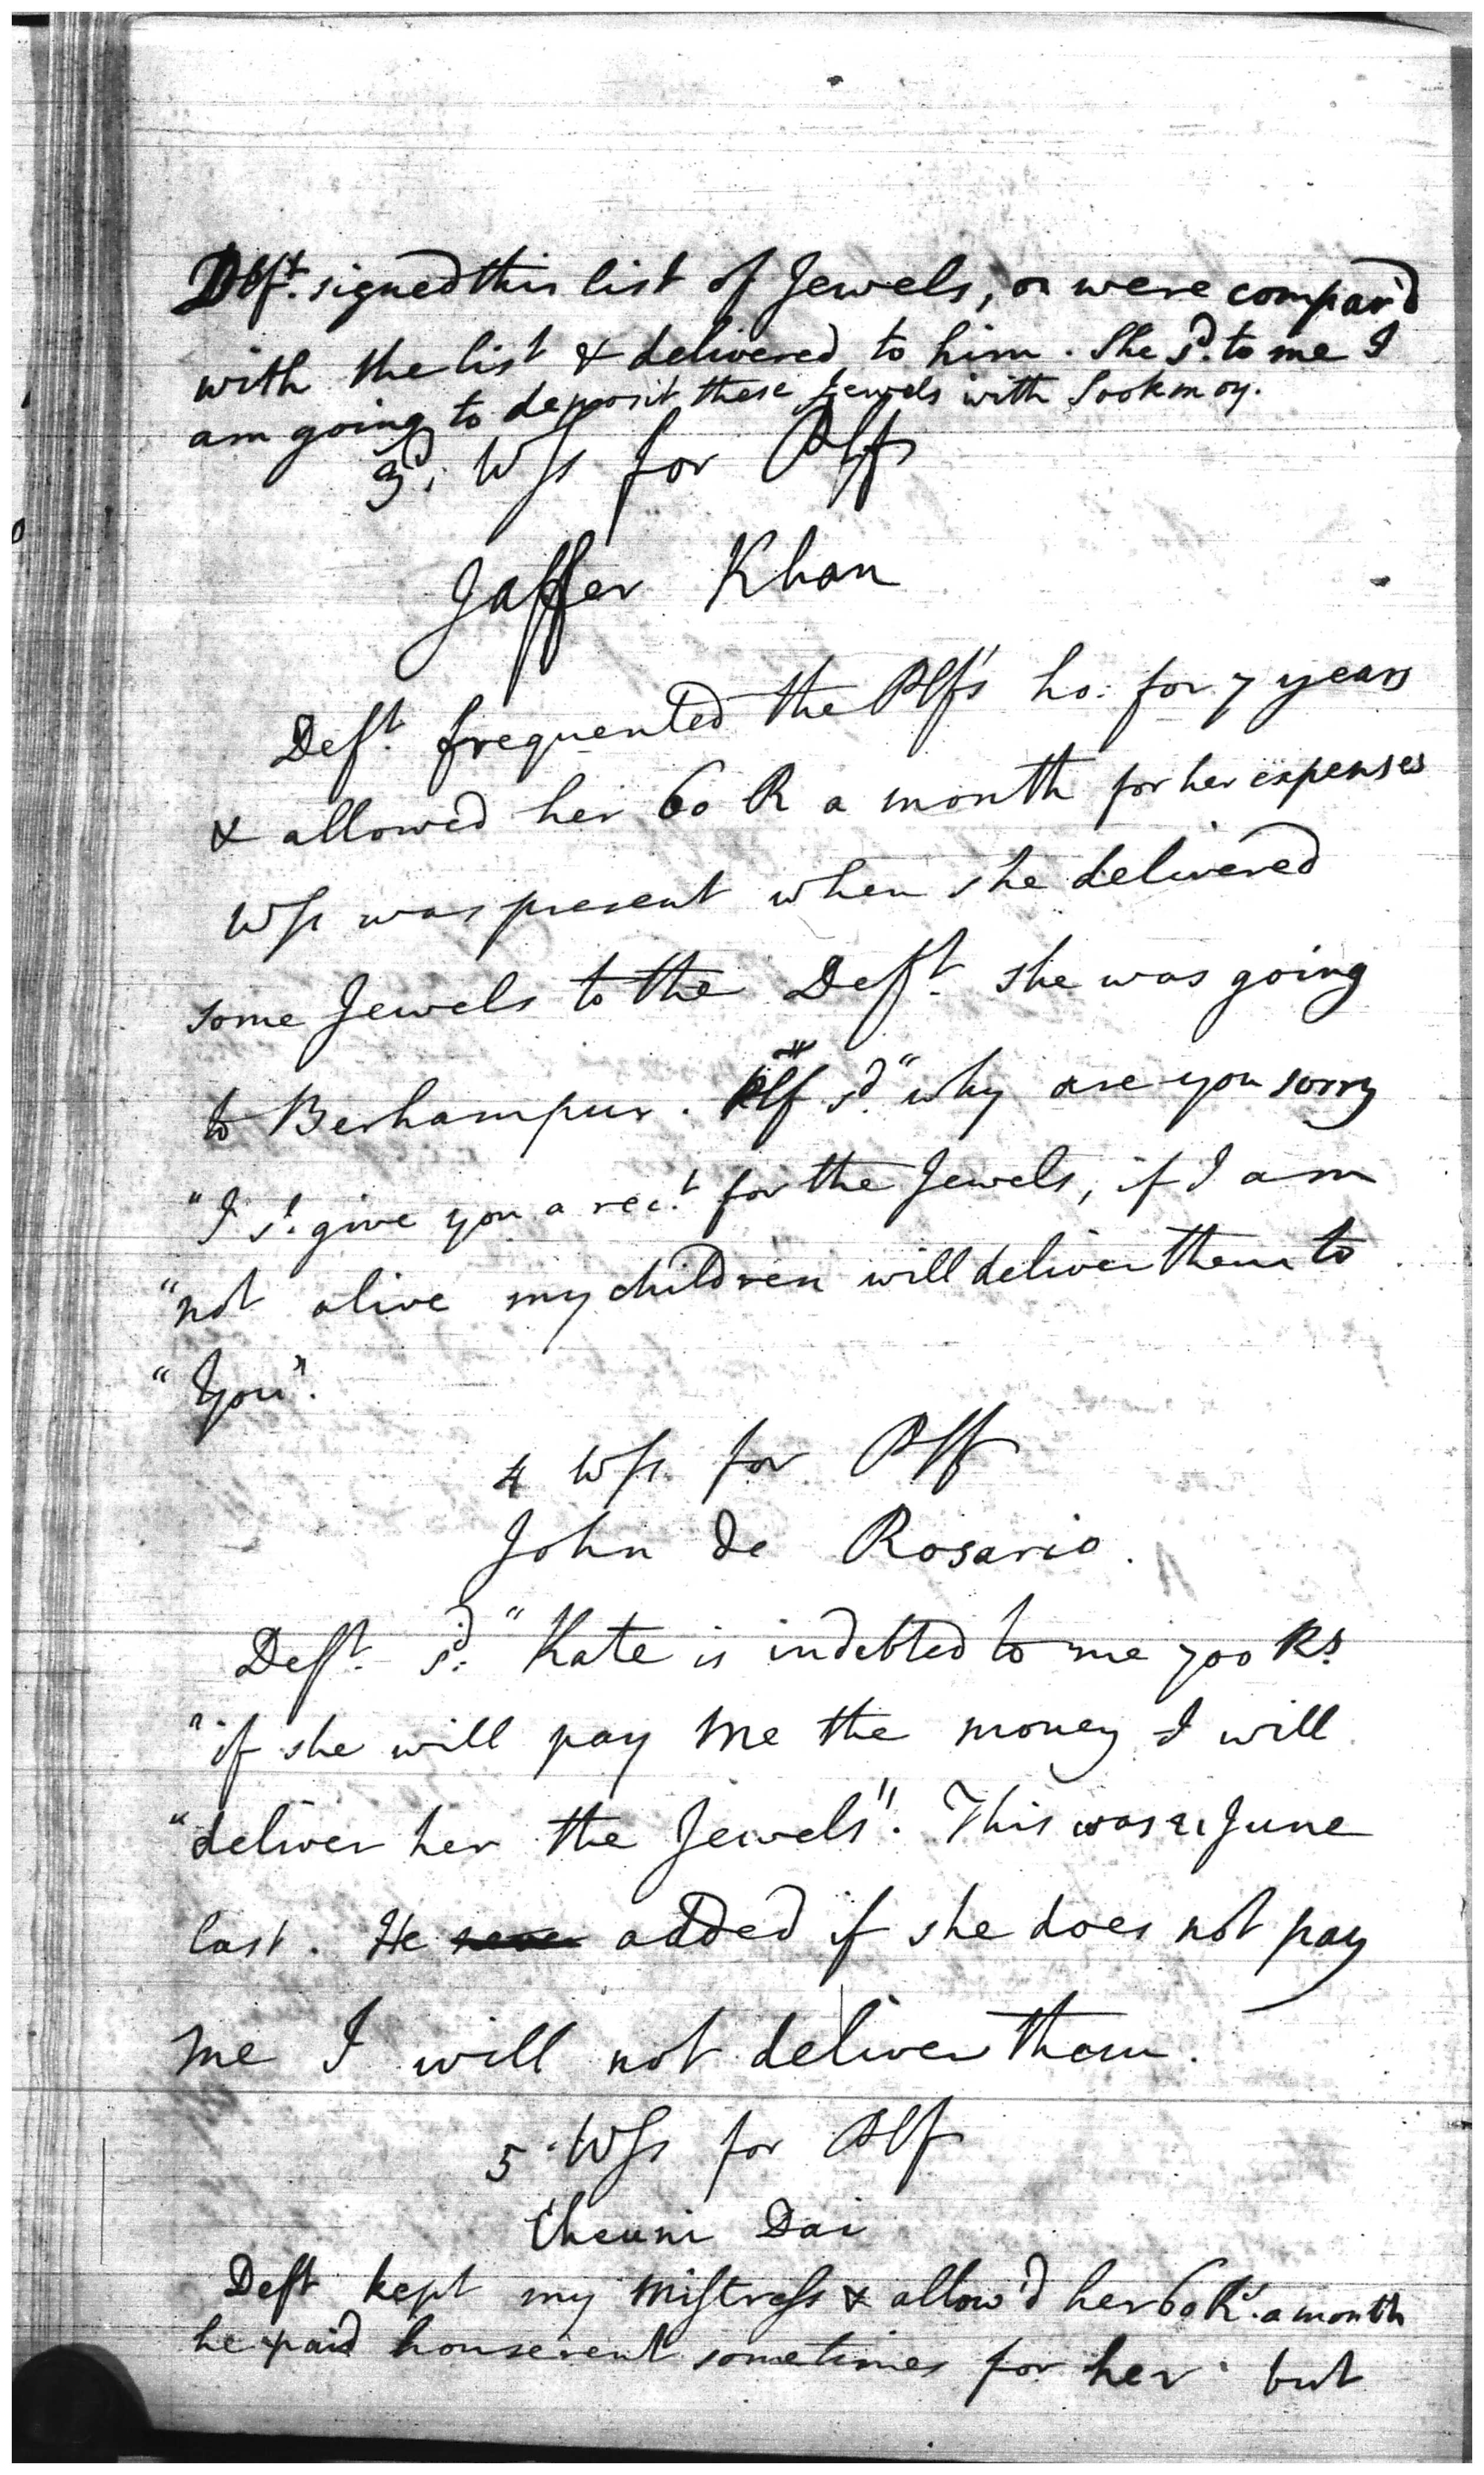 Deft. signed this list of Jewels, or were compar'd
with the list & delivered to him. She sd. to me I
am going to deposit these Jewels with Sookmoy.
3d. Wss for Plfs
Jaffer Khan
Deft. frequented the Plf's ho: for 7 years
& allowed her 60 R a month for her expenses
Wss was present when she delivered
some Jewels to the Deft. she was going
to Berhampur. Plf sd. "why are you sorry
"I sd. give you a rect. for the Jewels, if I am
"not alive my children will deliver them to
"You".
4 Wss. for Plf
John de Rosario.
Deft. sd. "Kate is indebted to me 700 Rs.
"if she will pay me the money I will
"deliver her the Jewels". This was 21 June
last. He added if she does not pay
me I will not deliver them.
5. Wss for Plf
Dai
Deft kept my Mistress & allow'd her 60 Rs. a month
he paid houserent sometimes for her but